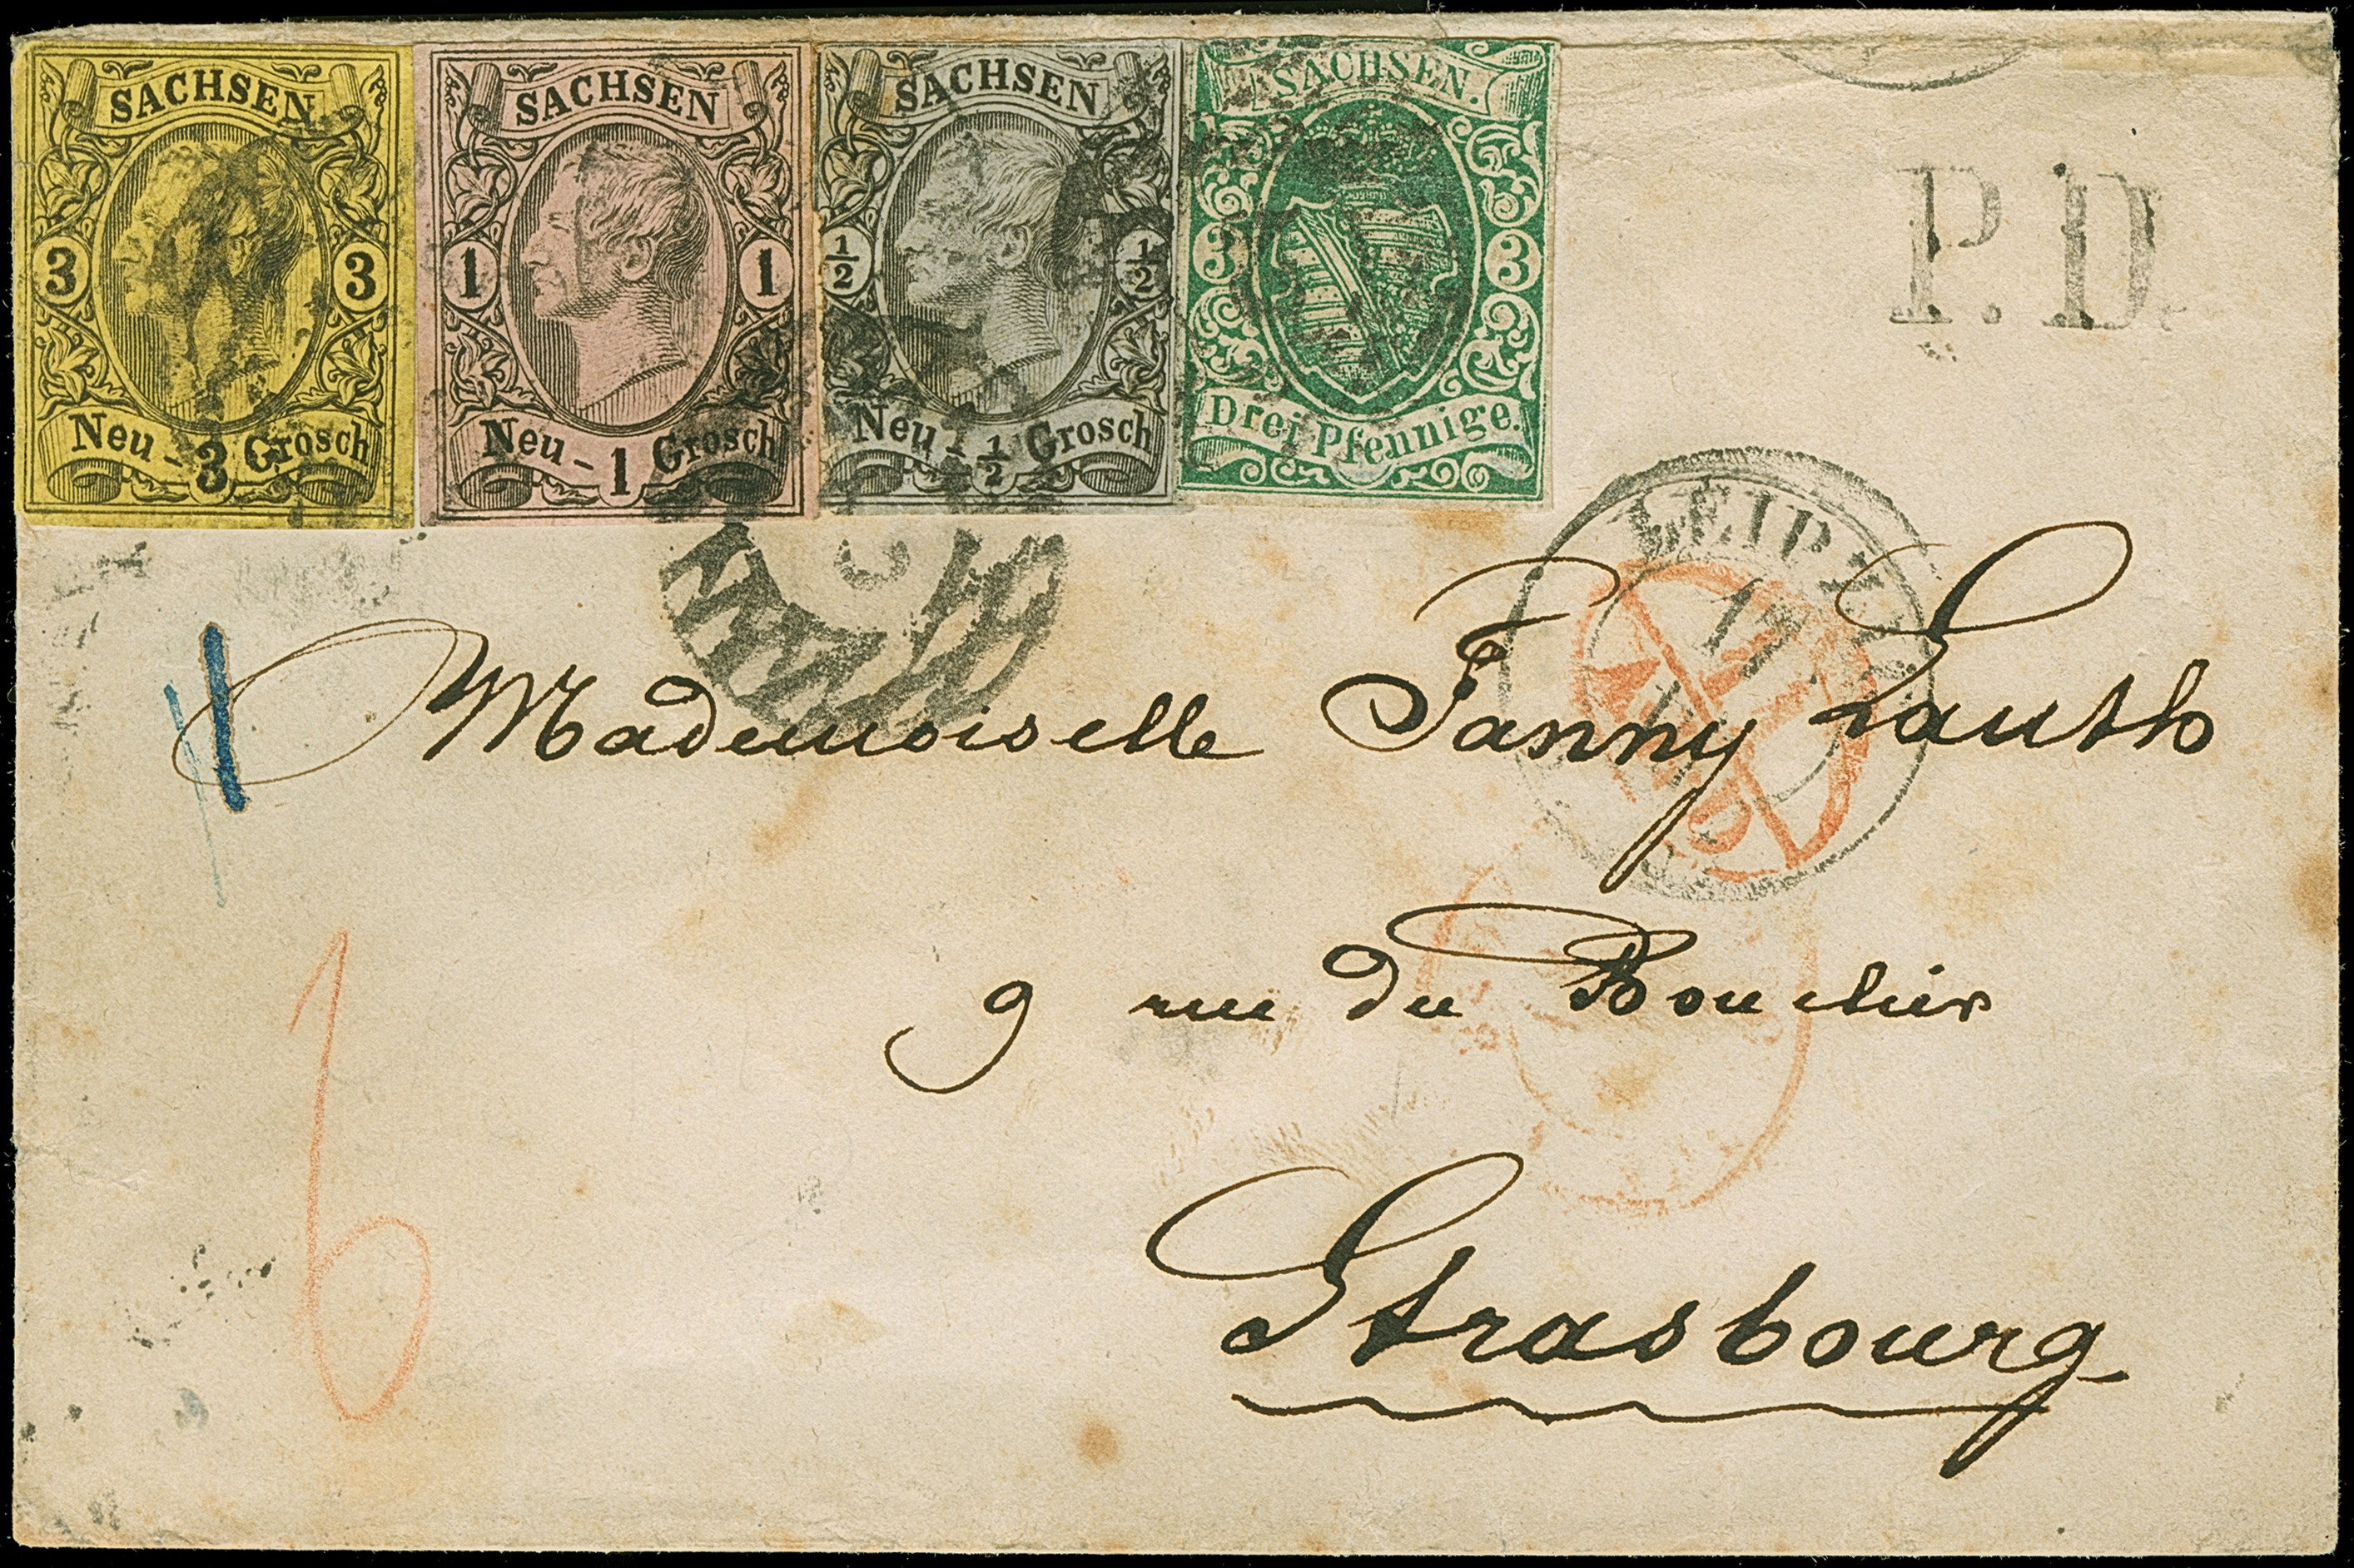 SACHSEN
3 3
Neu-3 Grosch
SACHSEN
1 1
Neu-1 Grosch
SACHSEN
1/2 1/2
Neu-1/2 Grosch
SACHSEN.
3 3
Drei Pfennige.
P.D.
LEIPZIG
Mademoiselle Fanny Lauth
9 rue du Bouclier
Strasbourg
6